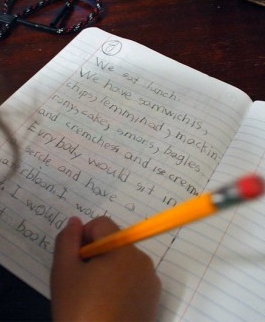 7
We eat lunch.
We have sandwichis,
chips, lemminhad, mackin
rony, cake, smors, bagles,
and cremches and ise crem
Evrybody would sit in
sercle and have a
I woul
I would
book